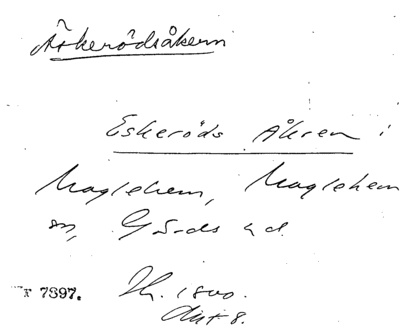 Äskerödsåkern
Eskeröds Åkren i
Maglehem, Maglehem
sn, Gärds hd.
F 7397. Sk. 1800.
Akt 8.